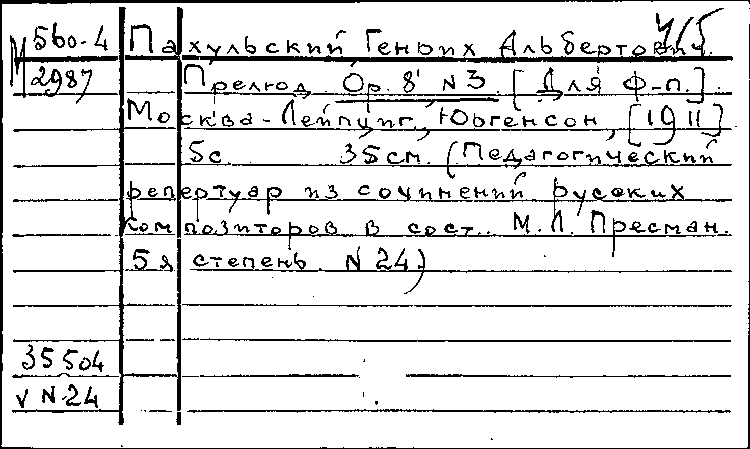 415
М 560-4 Пахульский Генрих Альбертович.
2987 Прелюд. Ор. 8, N 3. [Для ф-п.].
Москва-Лейпциг, Юргенсон, [1911]
5 с. 35 см. (Педагогический
репертуар из сочинений русских
композиторов в сост. М. Л. Пресман.
5 я степень. N 24)
35504
v N 24